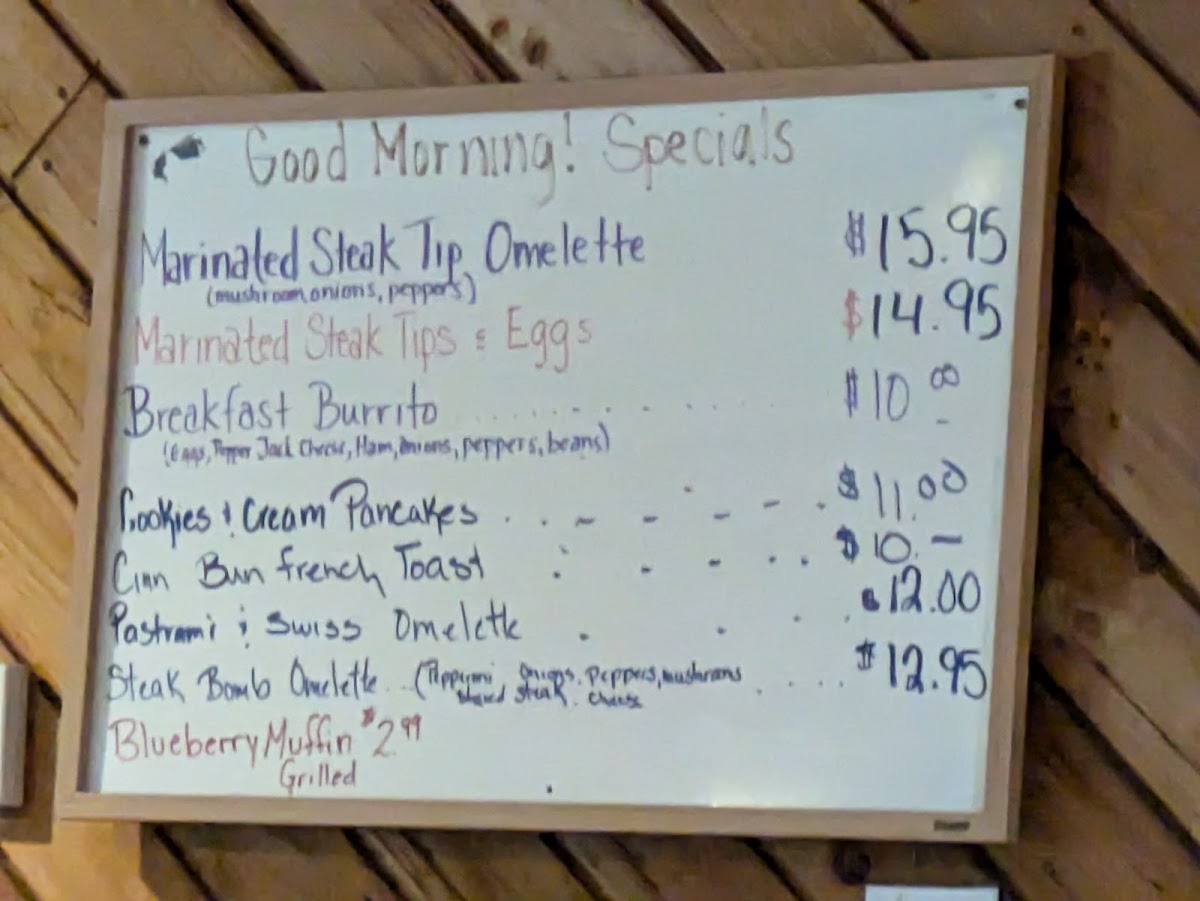 Good Morning! Specials
Marinated Steak Tip Omelette $15.95
(mushroom, onions, peppers)
Marinated Steak Tips & Eggs $14.95
Breakfast Burrito $10.00
(Eggs, Pepper Jack Cheese, Ham, onions, peppers, beans)
Cookies & Cream Pancakes $11.00
Cinn Bun French Toast $10.—
Pastrami & Swiss Omelette $12.00
Steak Bomb Omelette (Pepperoni, Onions, Peppers, mushrooms $12.95
shaved steak, cheese
Blueberry Muffin $2.99
Grilled